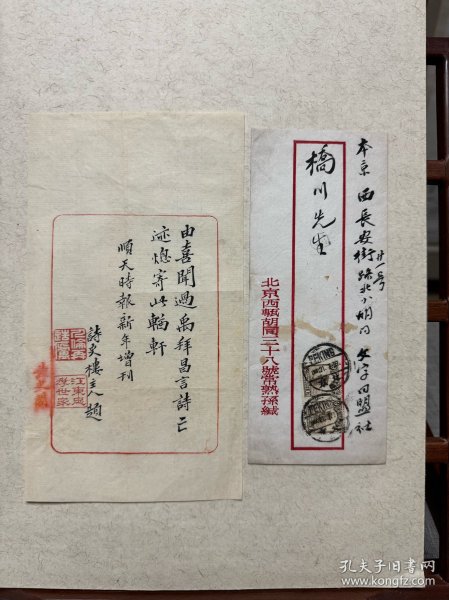 由喜聞過禹拜昌言詩亡
迹熄寄此輶軒
順天時報新年增刊
詩史樓主人題
本京西長安街路北小胡同文字同盟社
廿一号
橋川先生
北京西城胡同三十八號常熟孫緘
PEKING
孔夫子旧书网
www.kongfz.com